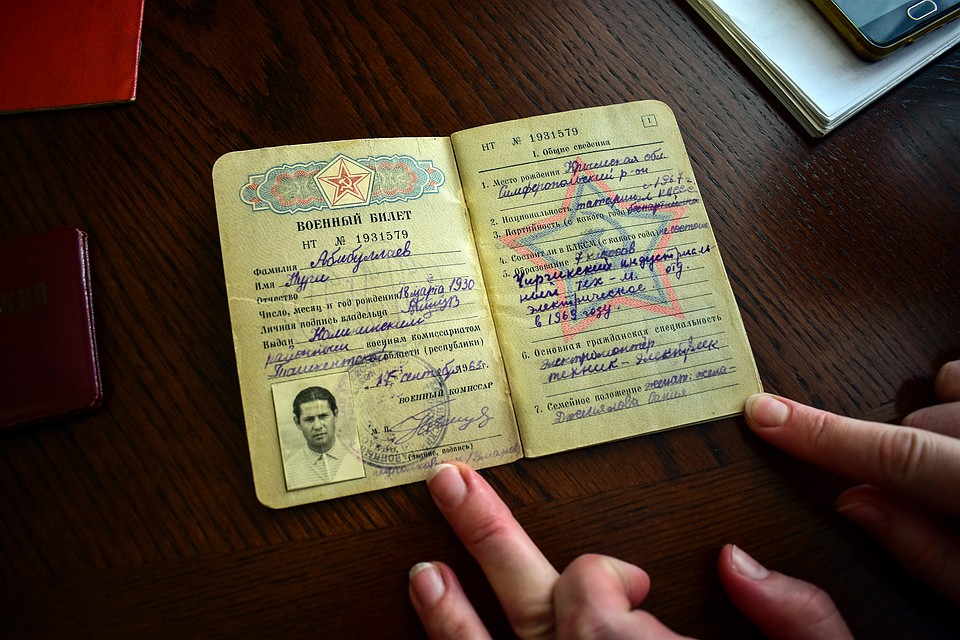 ВОЕННЫЙ БИЛЕТ
НТ № 1931579
Фамилия Абибуллаев
Имя Нури
Отчество
Число, месяц и год рождения 18 марта 1930
Личная подпись владельца
Выдан Калининским
районным военным комиссариатом
Ташкентской области (республики)
15 сентября 1963 г.
ВОЕННЫЙ КОМИССАР
М. П.
(звание, подпись)
НТ № 1931579
1
I. Общие сведения
1. Место рождения Крымская обл.
Симферопольский р-он
2. Национальность татарин
3. Партийность (с какого года) с 1967 г. чл. КПСС
4. Состоял в ВЛКСМ (с какого года) не состоял
5. Образование 7 классов
Чирчикский индустриаль
ный тех. М.
электрическое отд.
в 1969 году.
6. Основная гражданская специальность
Электромонтер
техник-электрик
7. Семейное положение женат. жена-